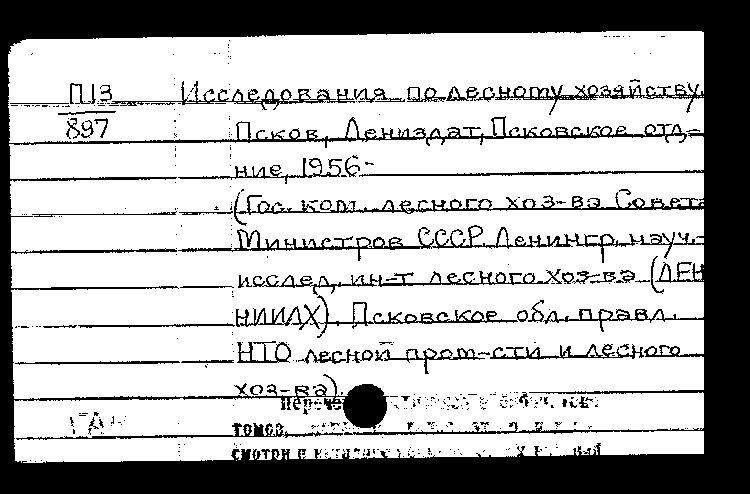 П13 Исследования по лесному хозяйству.
897 Псков, Лениздат, Псковское отд-
ние, 1956-
(Гос. ком. лесного хоз-ва Совета
Министров СССР. Ленингр. науч.-
исслед. ин-т лесного хоз-ва (ЛЕН
НИИЛХ). Псковское обл. правл.
НТО лесной пром-сти и лесного
хоз-ва).
томов,
смотри в